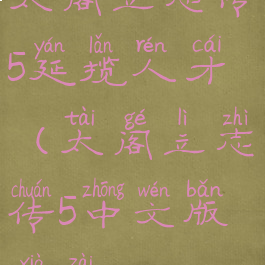 太阁立志传
yán lǎn rén cái
5延揽人才
tài gé lì zhì
(太阁立志
chuán zhōng wén bǎn
传5中文版
xià zài